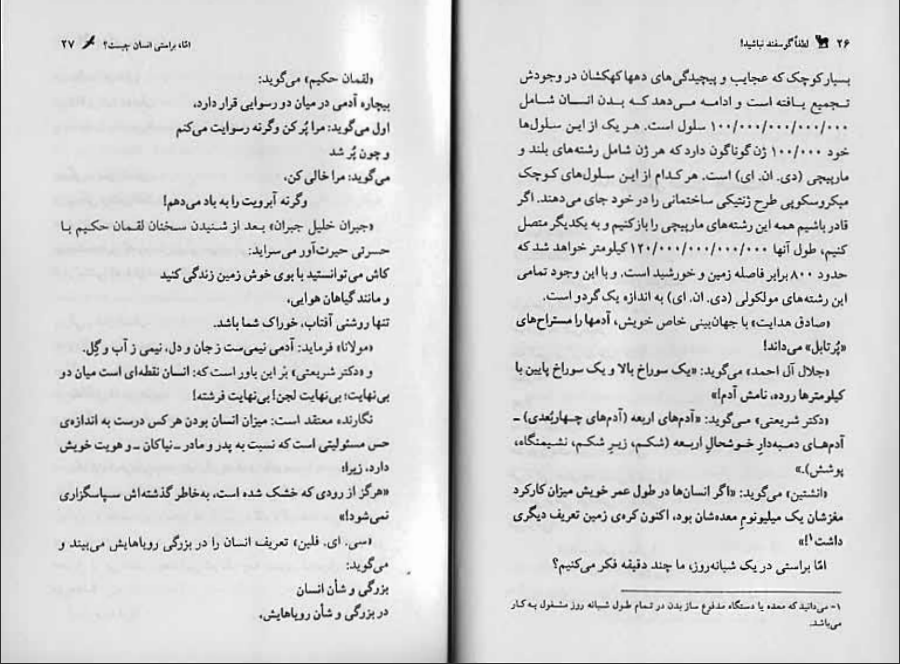 ۲۶ لطفاً گوسفند نباشید!
بسیار کوچک که عجایب و پیچیدگی‌های دهها کهکشان در وجودش
تجمیع یافته است و ادامه می‌دهد که بدن انسان شامل
۱۰۰/۰۰۰/۰۰۰/۰۰۰/۰۰۰ سلول است. هر یک از این سلول‌ها
خود ۱۰۰/۰۰۰ ژن گوناگون دارد که هر ژن شامل رشته‌های بلند و
مارپیچی (دی. ان. ای) است. هر کدام از این سلول‌های کوچک
میکروسکوپی طرح ژنتیکی ساختمانی را در خود جای می‌دهند. اگر
قادر باشیم همه این رشته‌های مارپیچی را بازکنیم و به یکدیگر متصل
کنیم، طول آنها ۱۲۰/۰۰۰/۰۰۰/۰۰۰ کیلومتر خواهد شد که
حدود ۸۰۰ برابر فاصله زمین و خورشید است. و با این وجود تمامی
این رشته‌های مولکولی (دی. ان. ای) به اندازه یک گردو است.
«صادق هدایت» با جهان‌بینی خاص خویش، آدمها را مستراح‌های
«پُرتابل» می‌داند!
«جلال آل احمد» می‌گوید: «یک سوراخ بالا و یک سوراخ پایین با
کیلومترها روده، نامش آدم!»
«دکتر شریعتی» می‌گوید: «آدم‌های اربعه (آدم‌های چهاربُعدی) ـ
آدم‌های دمبه‌دارِ خوشحالِ اربعه (شکم، زیرِ شکم، نشیمنگاه،
پوشش).»
«انشتین» می‌گوید: «اگر انسان‌ها در طول عمر خویش میزان کارکرد
مغزشان یک میلیونوم معده‌شان بود، اکنون کره‌ی زمین تعریف دیگری
داشت۱!»
امّا براستی در یک شبانه‌روز، ما چند دقیقه فکر می‌کنیم؟
۱- می‌دانید که معده یا دستگاه مدفوع ساز بدن در تمام طول شبانه روز مشغول به کار
می‌باشد.
امّا، براستی انسان چیست؟ ۲۷
«لقمان حکیم» می‌گوید:
بیچاره آدمی در میان دو رسوایی قرار دارد،
اول می‌گوید: مرا پُر کن وگرنه رسوایت می‌کنم
و چون پُر شد
می‌گوید: مرا خالی کن،
وگرنه آبرویت را به باد می‌دهم!
«جبران خلیل جبران» بعد از شنیدن سخنان لقمان حکیم با
حسرتی حیرت‌آور می‌سراید:
کاش می‌توانستید با بوی خوش زمین زندگی کنید
و مانند گیاهان هوایی،
تنها روشنی آفتاب، خوراک شما باشد.
«مولانا» فرماید: آدمی نیمی‌ست ز جان و دل، نیمی ز آب و گِل.
و «دکتر شریعتی» بَر این باور است که: انسان نقطه‌ای است میان دو
بی‌نهایت؛ بی‌نهایت لجن! بی‌نهایت فرشته!
نگارنده معتقد است: میزان انسان بودن هر کس درست به اندازه‌ی
حس مسئولیتی است که نسبت به پدر و مادر ـ نیاکان ـ و هویت خویش
دارد، زیرا:
«هرگز از رودی که خشک شده است، به‌خاطر گذشته‌اش سپاسگزاری
نمی‌شود!»
«سی. ای. فلین» تعریف انسان را در بزرگی رویاهایش می‌بیند و
می‌گوید:
بزرگی و شأن انسان
در بزرگی و شأن رویاهایش،